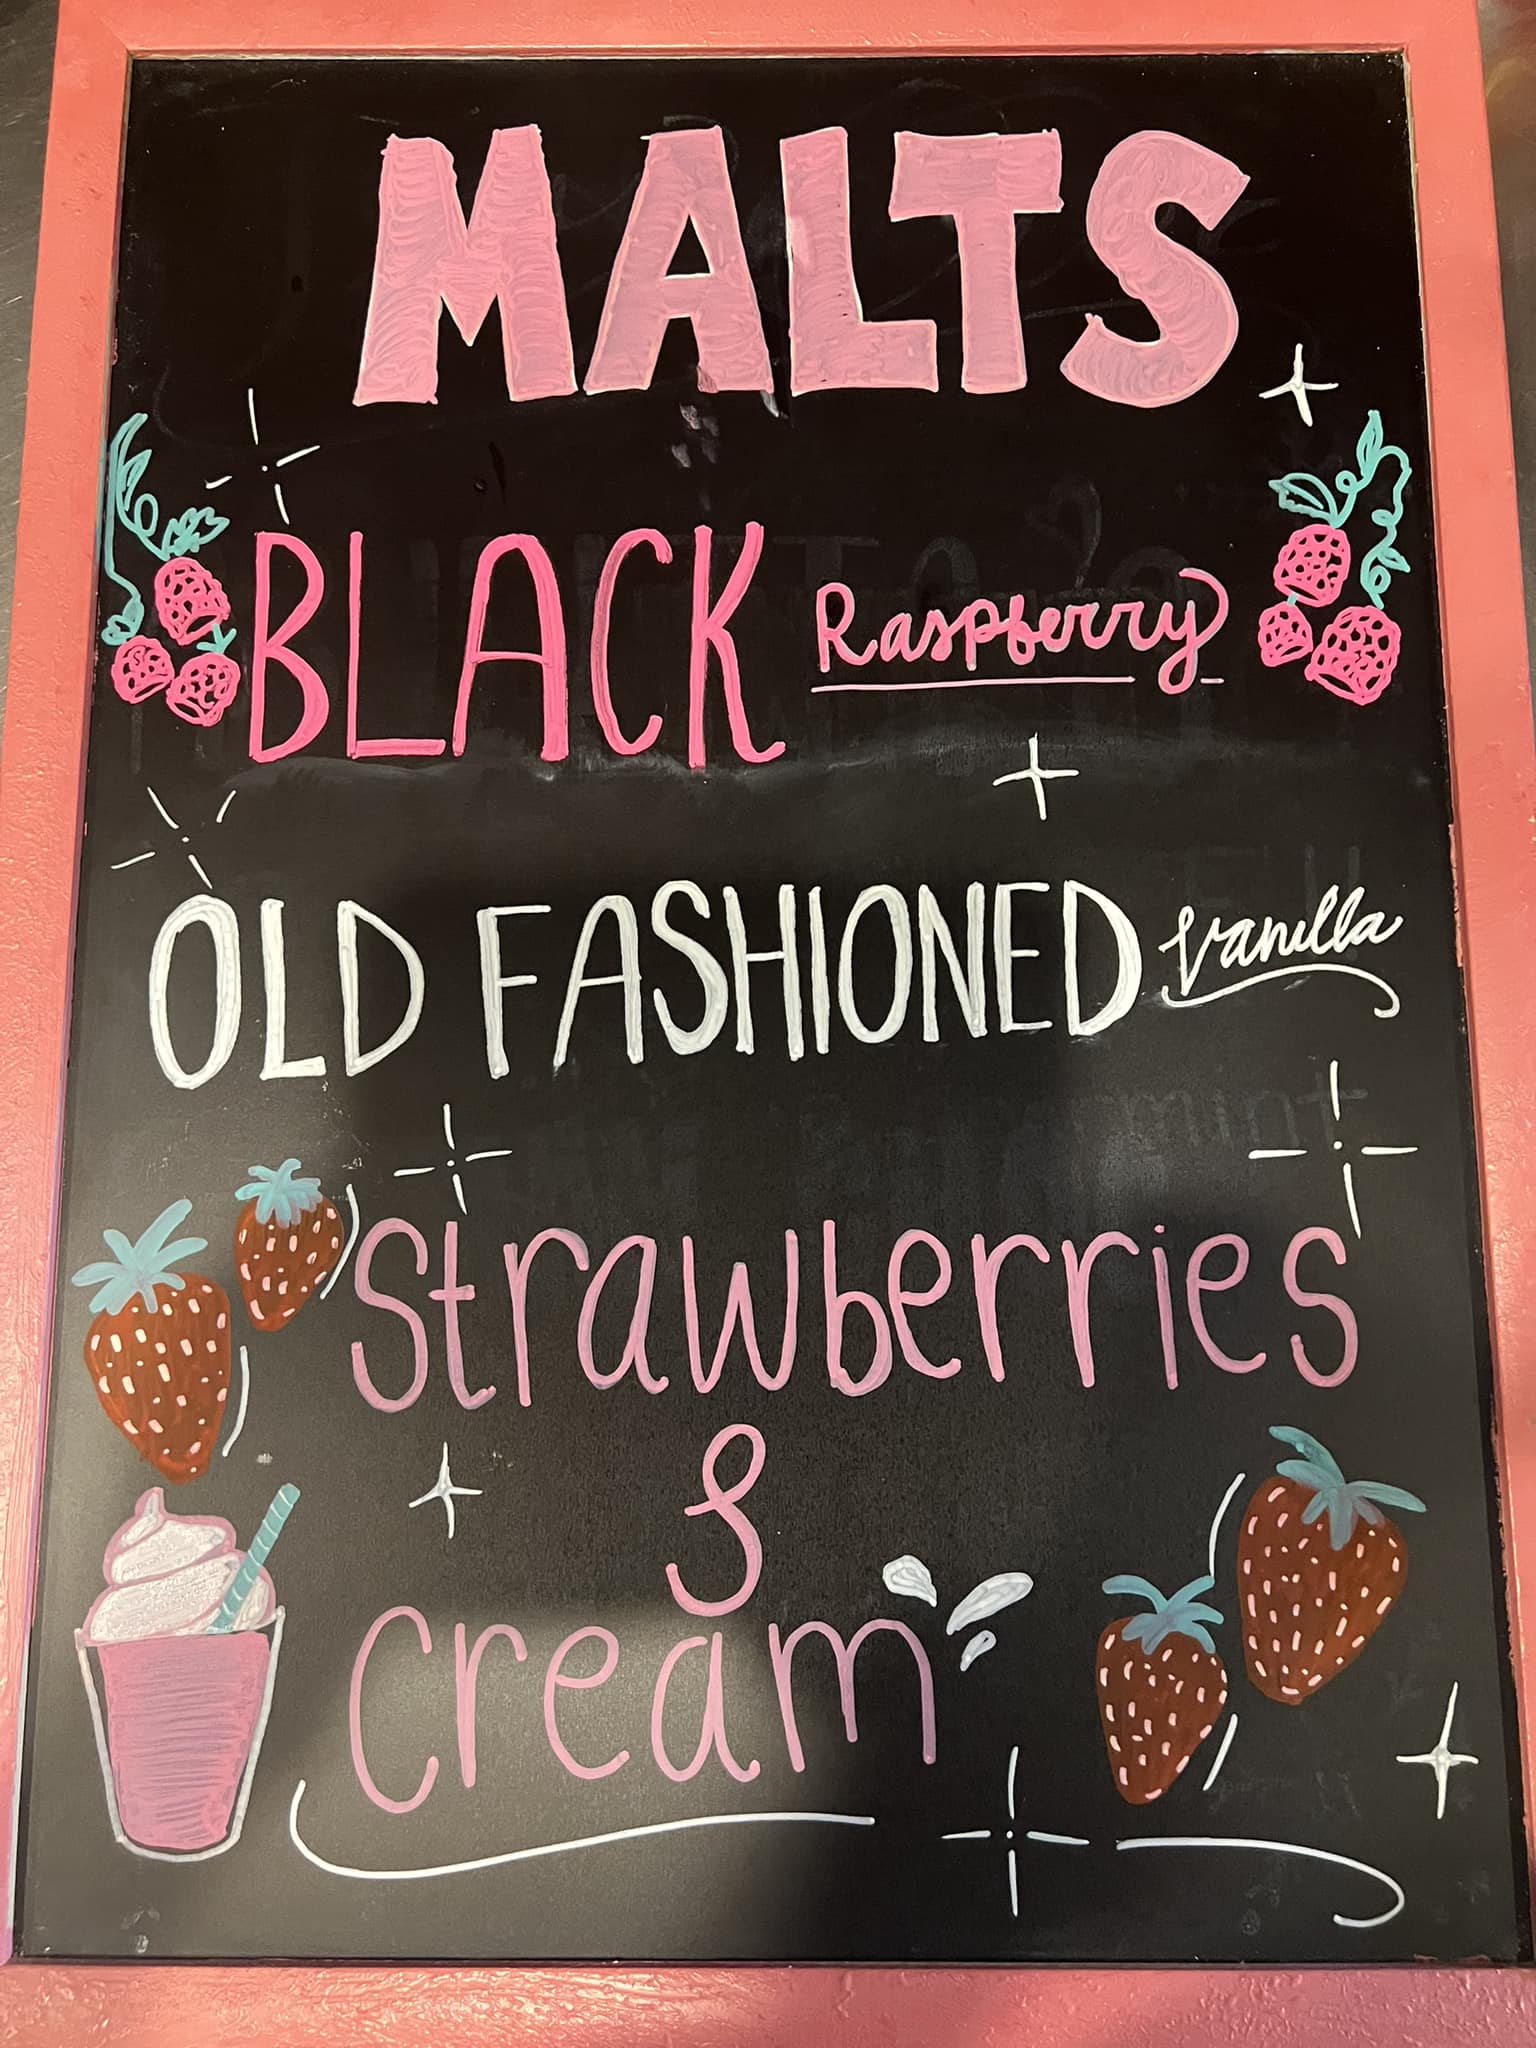 MALTS
BLACK Raspberry
OLD FASHIONED Vanilla
Strawberries
&
Cream